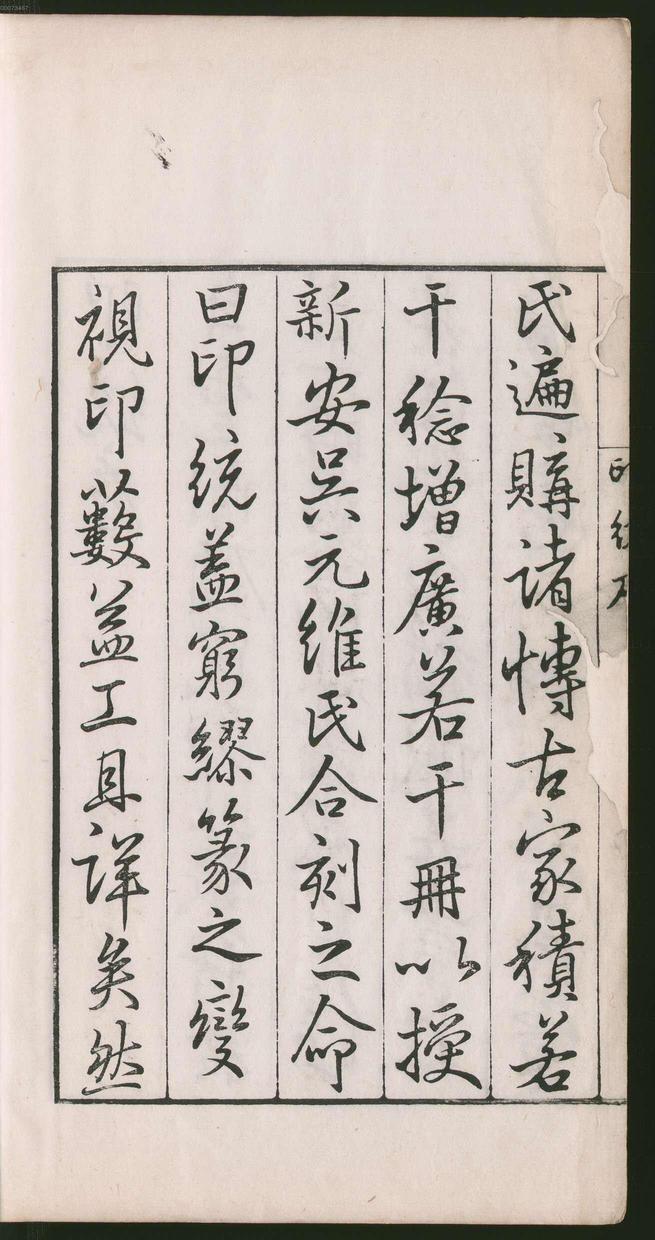 氏遍購諸慱古家積若
干稔增廣若干冊以授
新安吳元維氏合刻之命
曰印統蓋窮繆篆之變
視印藪益工具詳矣然
00073467